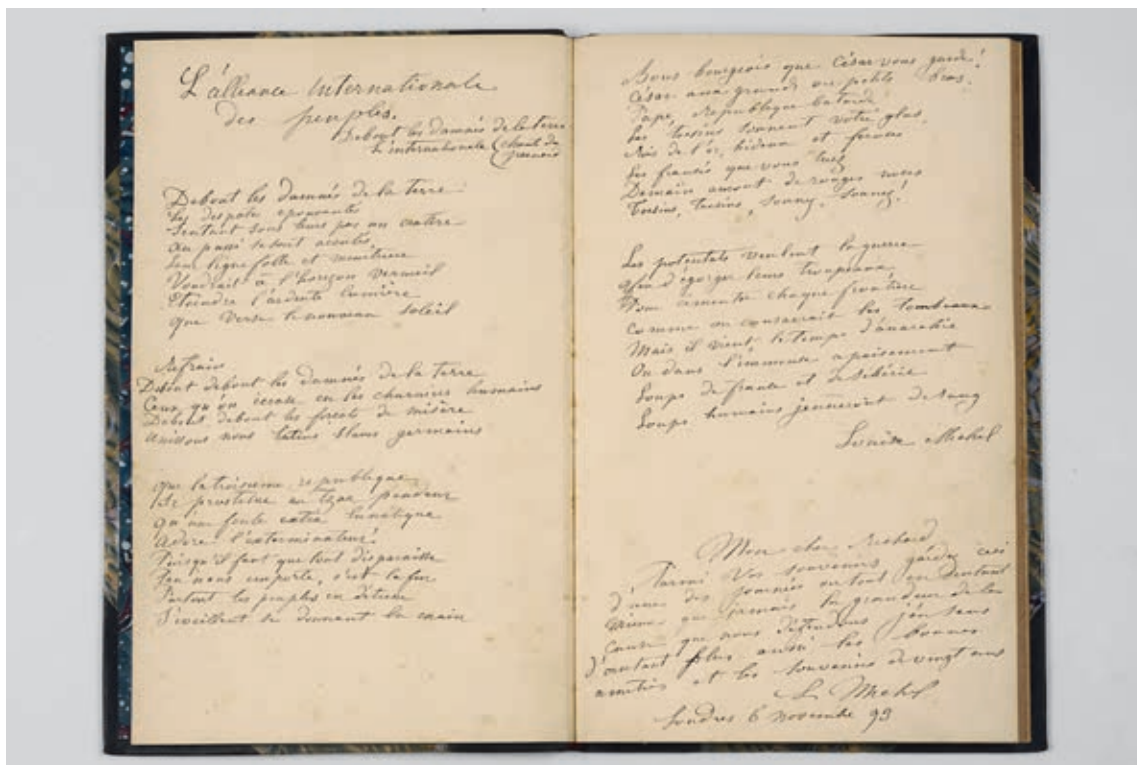 L'alliance Internationale
des peuples.
Debout les damnés de la terre
L'internationale (chant du
Debout les damnés de la terre
Les despote épouvantés
Sentant sous leurs pas un cratère
Au passé se sont acculés
Leur ligue folle et meurtrière
Voudrait à l'horizon vermeil
Eteindre l'ardente lumière
Que verse le nouveau soleil
Refrain
Debout debout les damnés de la terre
Ceux qu'on écrase en les charniers humains
Debout debout les forçats de misère
Unissons nous latins slaves germains
Que la troisième republique
Se prostitue au tzar pendeur
Qu'une foule lunatique
Adore l'exterminateur!
Puisqu'il faut que tout disparaisse
Peu nous importe, c'est la fin
Partout les peuples en détresse
S'éveillent se donnant la main
Bons bourgeois que César vous garde!
César aux grands ou petits bras.
Pape, République batarde
Les tocsins sonnent votre glas.
Rois de l'or, hideux et féroces
Les fiancés que vous tuez
Demain auront de rouges noces
Tocsins, tocsins, sonnez, sonnez!
Les potentats veulent la guerre
Afin d'égorger leurs troupeaux
Pour cimenter chaque frontière
Comme on consacrait les tombeaux
Mais il vient le temps d'anarchie
Ou dans l'immense apaisement
Loups de france et de sibérie
Loups humains jeuneront de sang
Louise Michel
Mon cher Richard
Parmi vos souvenirs gardez ceci
d'une des journées ou tout en sentant
mieux que jamais la grandeur de la
cause que nous défendons j'en sens
d'autant plus aussi les bonnes
amitiés et les souvenirs de vingt ans
L Michel
Londres 6 novembre 93